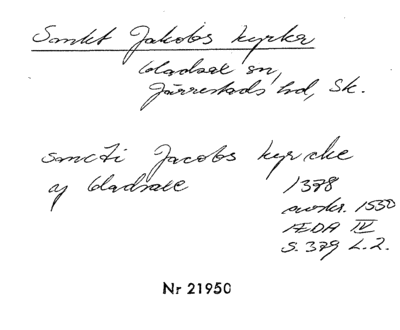 Sankt Jakobs kyrka
Vladsax sn,
Järrestads hd, Sk.
Sancti Jacobs kyrcke
y Vladsaxe
1378
avskr. 1550
ÆDA IV
S. 379 L. 2.
Nr 21950